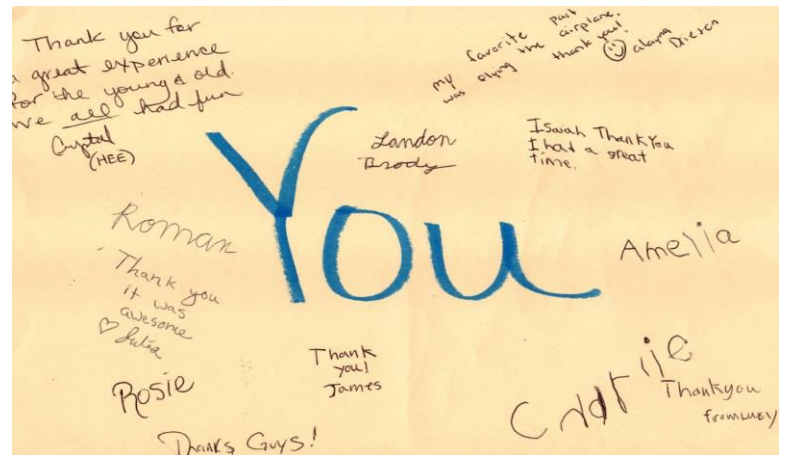 Thank you for
a great experience
for the young & old.
We all had fun
Crystal
(HEE)
my favorite part
was flying the airplane.
thank you!
Landon
Brody
Isaiah Thank You
I had a great
time.
You
Roman
Amelia
Thank you
it was
awesome
♡ Julia
Thank
you!
James
Rosie
Charlie
Thankyou
from Lucy
Thanks Guys!